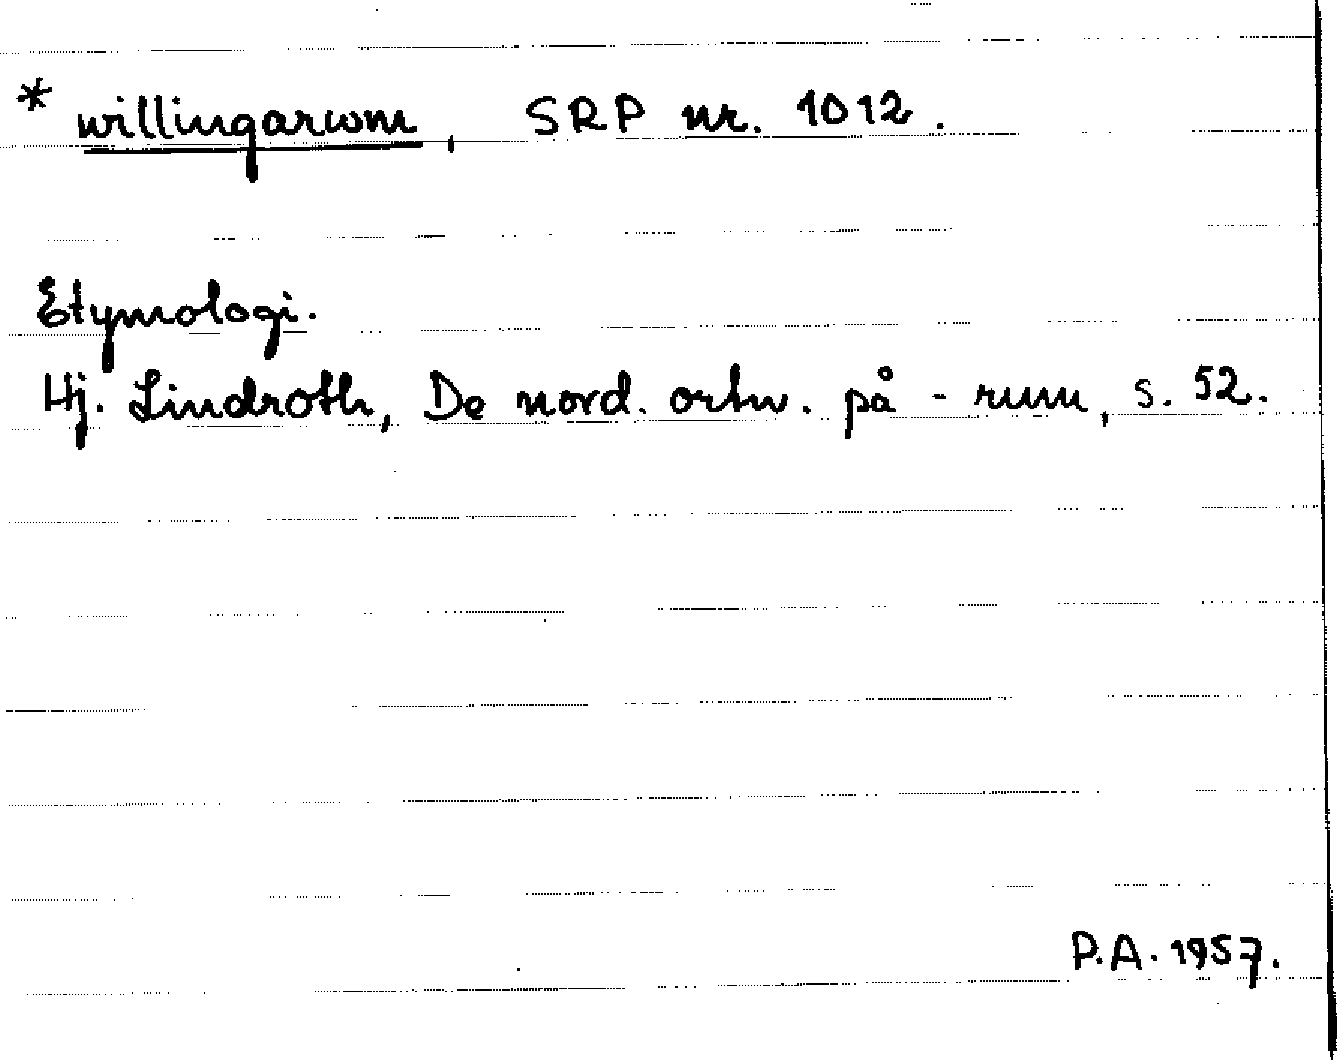 * willingarwm, SRP nr. 1012.
Etymologi.
Hj. Lindroth, De nord. ortn. på -rum, s. 52.
P.A. 1957.